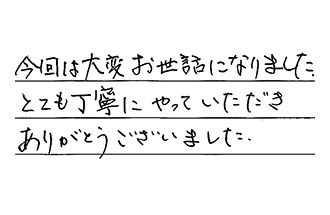 今回は大変お世話になりました.
とても丁寧にやっていただき
ありがとうございました.